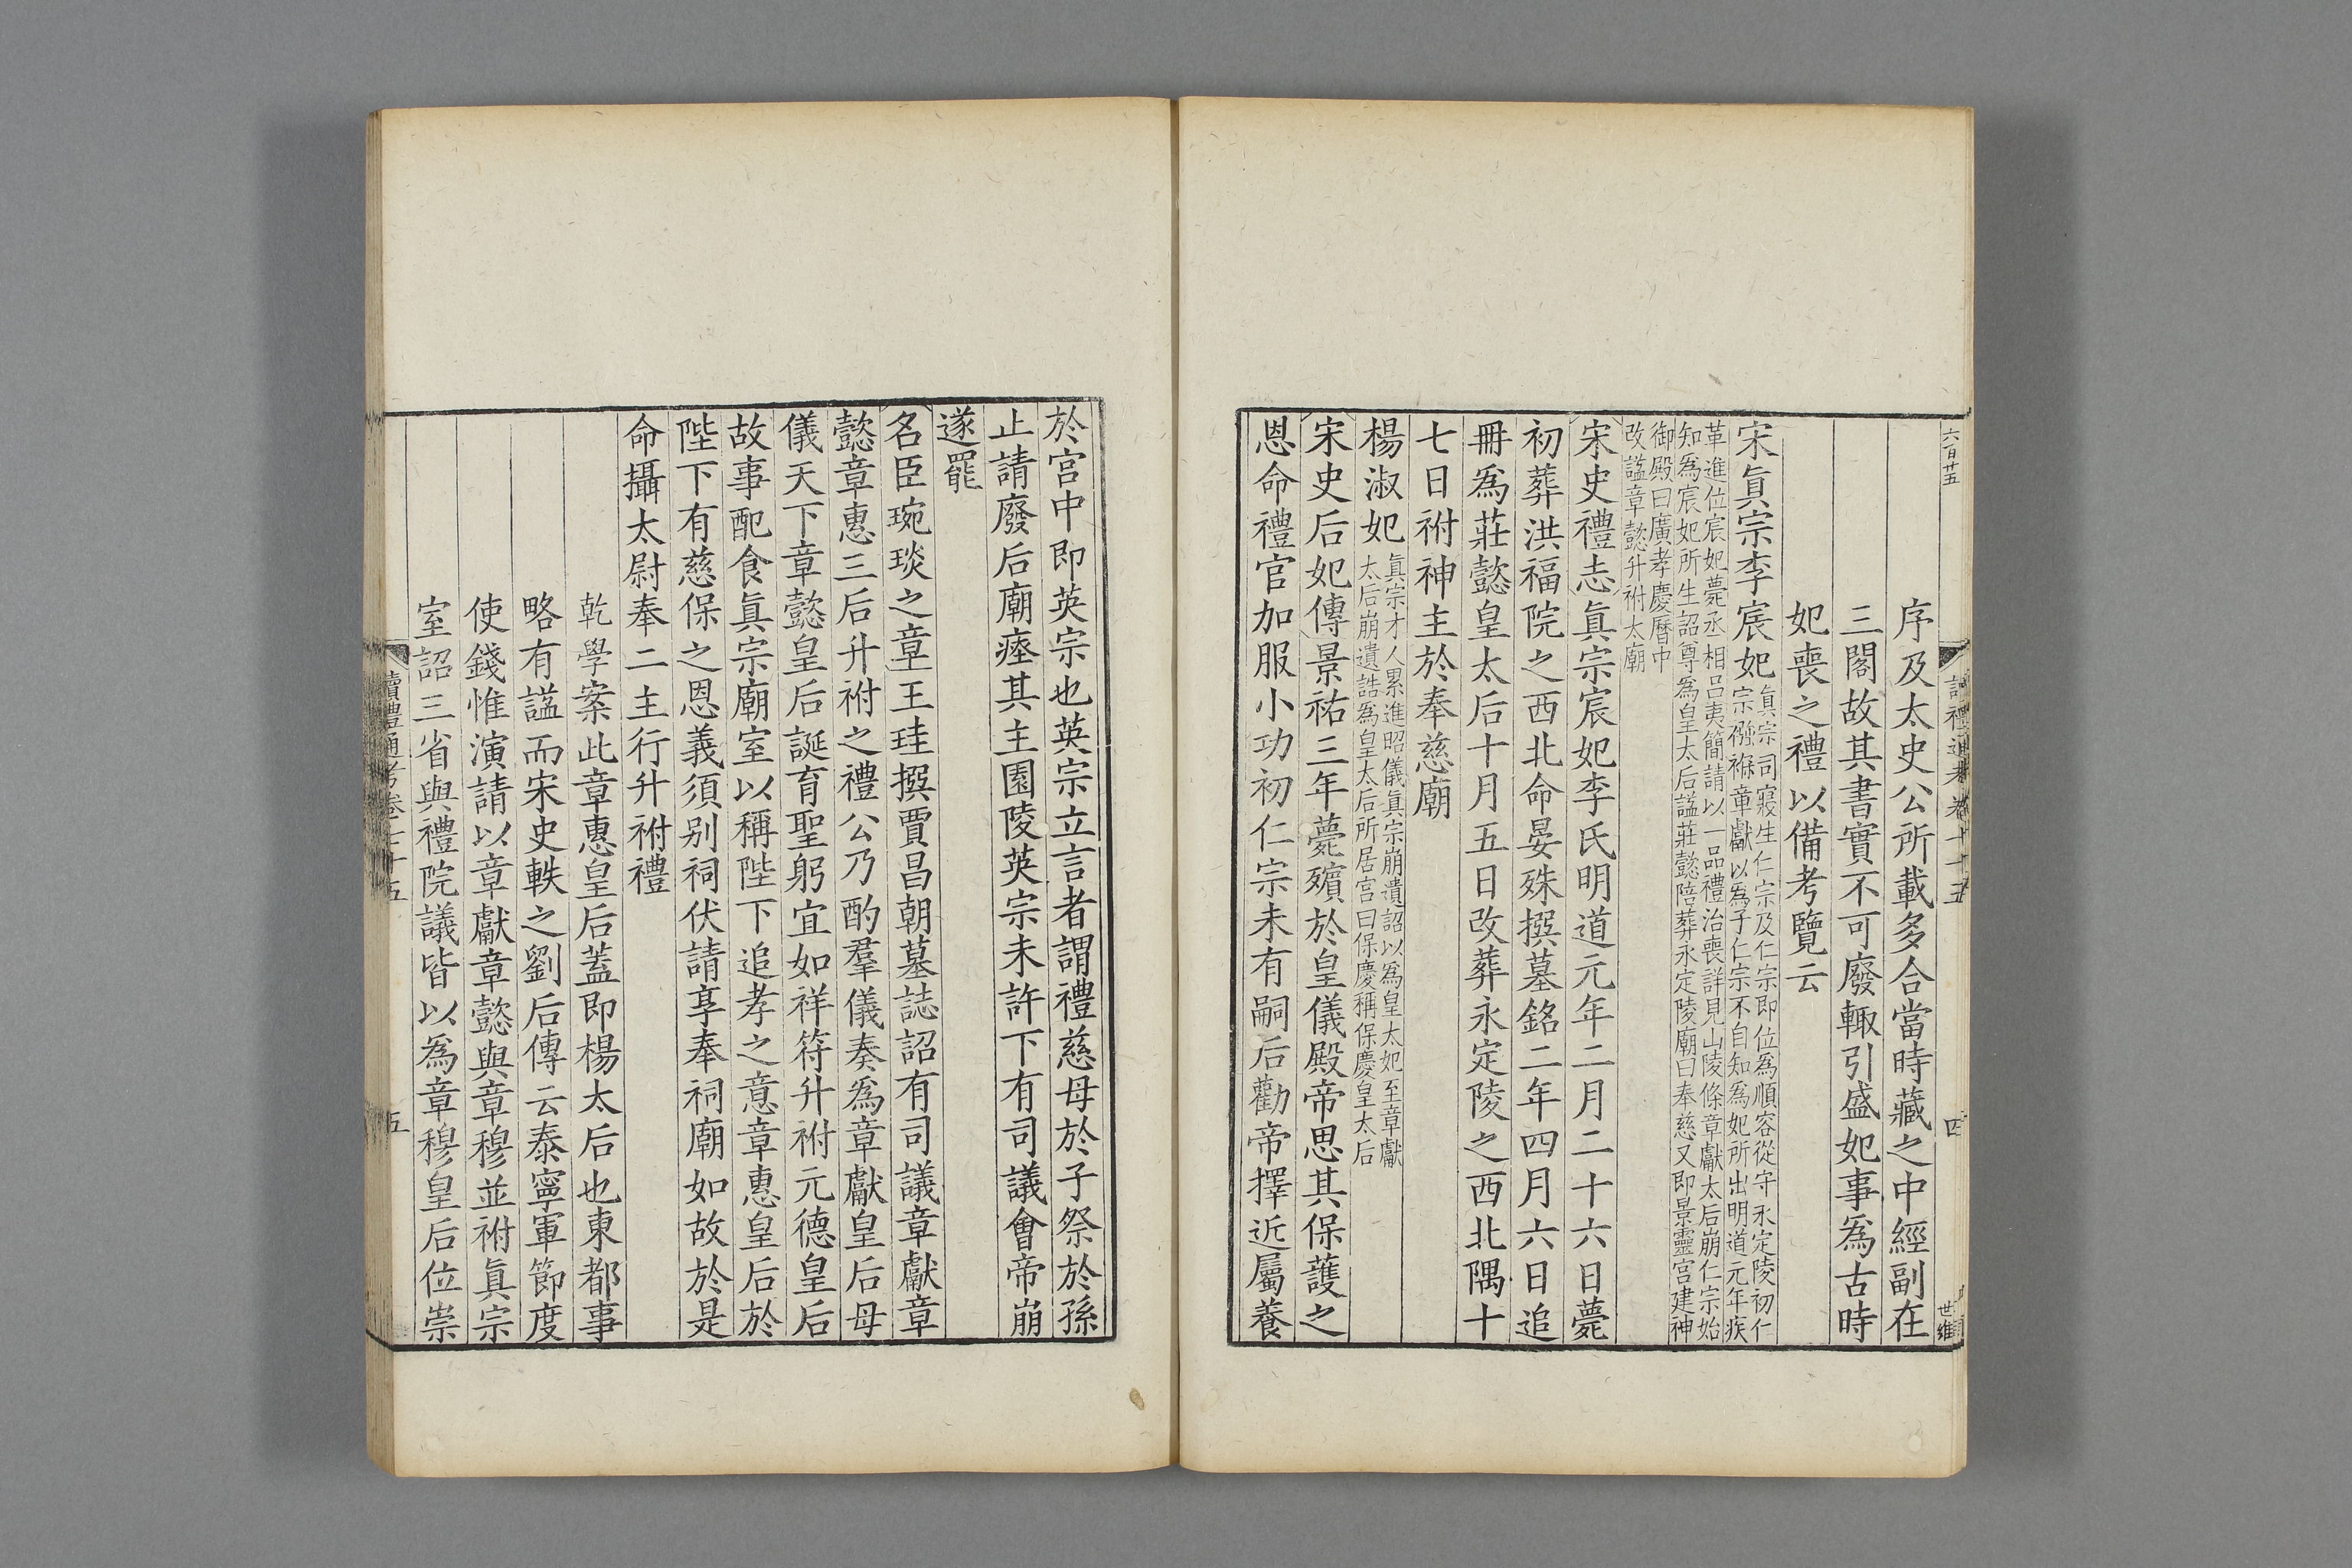 六百廿五
讀禮通考卷七十五
四
序及太史公所載多合當時藏之中經副在
三閣故其書實不可廢輙引盛妃事爲古時
妃喪之禮以備考覽云
宋眞宗李宸妃
眞宗司寢生仁宗及仁宗即位爲順容從守永定陵初仁
宗襁褓章獻以爲子仁宗不自知爲妃所出明道元年疾
革進位宸妃薨丞相吕夷簡請以一品禮治喪詳見山陵條章獻太后崩仁宗始
知爲宸妃所生詔尊爲皇太后謚莊懿陪葬永定陵廟曰奉慈又即景靈宫建神
御殿曰廣孝慶曆中
改謚章懿升祔太廟
宋史禮志眞宗宸妃李氏明道元年二月二十六日薨
初葬洪福院之西北命晏殊撰墓銘二年四月六日追
冊爲莊懿皇太后十月五日改葬永定陵之西北隅十
七日祔神主於奉慈廟
楊淑妃
眞宗才人累進昭儀眞宗崩遺詔以爲皇太妃至章獻
太后崩遺誥爲皇太后所居宫曰保慶稱保慶皇太后
宋史后妃傳景祐三年薨殯於皇儀殿帝思其保護之
恩命禮官加服小功初仁宗未有嗣后勸帝擇近屬養
於宫中即英宗也英宗立言者謂禮慈母於子祭於孫
止請廢后廟瘞其主園陵英宗未許下有司議會帝崩
遂罷
名臣琬琰之章王珪撰賈昌朝墓誌詔有司議章獻章
懿章惠三后升祔之禮公乃酌羣儀奏爲章獻皇后母
儀天下章懿皇后誕育聖躬宜如祥符升祔元德皇后
故事配食眞宗廟室以稱陛下追孝之意章惠皇后於
陛下有慈保之恩義須别祠伏請享奉祠廟如故於是
命攝太尉奉二主行升祔禮
乾學案此章惠皇后蓋即楊太后也東都事
略有謚而宋史軼之劉后傳云泰寧軍節度
使錢惟演請以章獻章懿與章穆並祔眞宗
室詔三省與禮院議皆以爲章穆皇后位崇
讀禮通考卷七十五
五